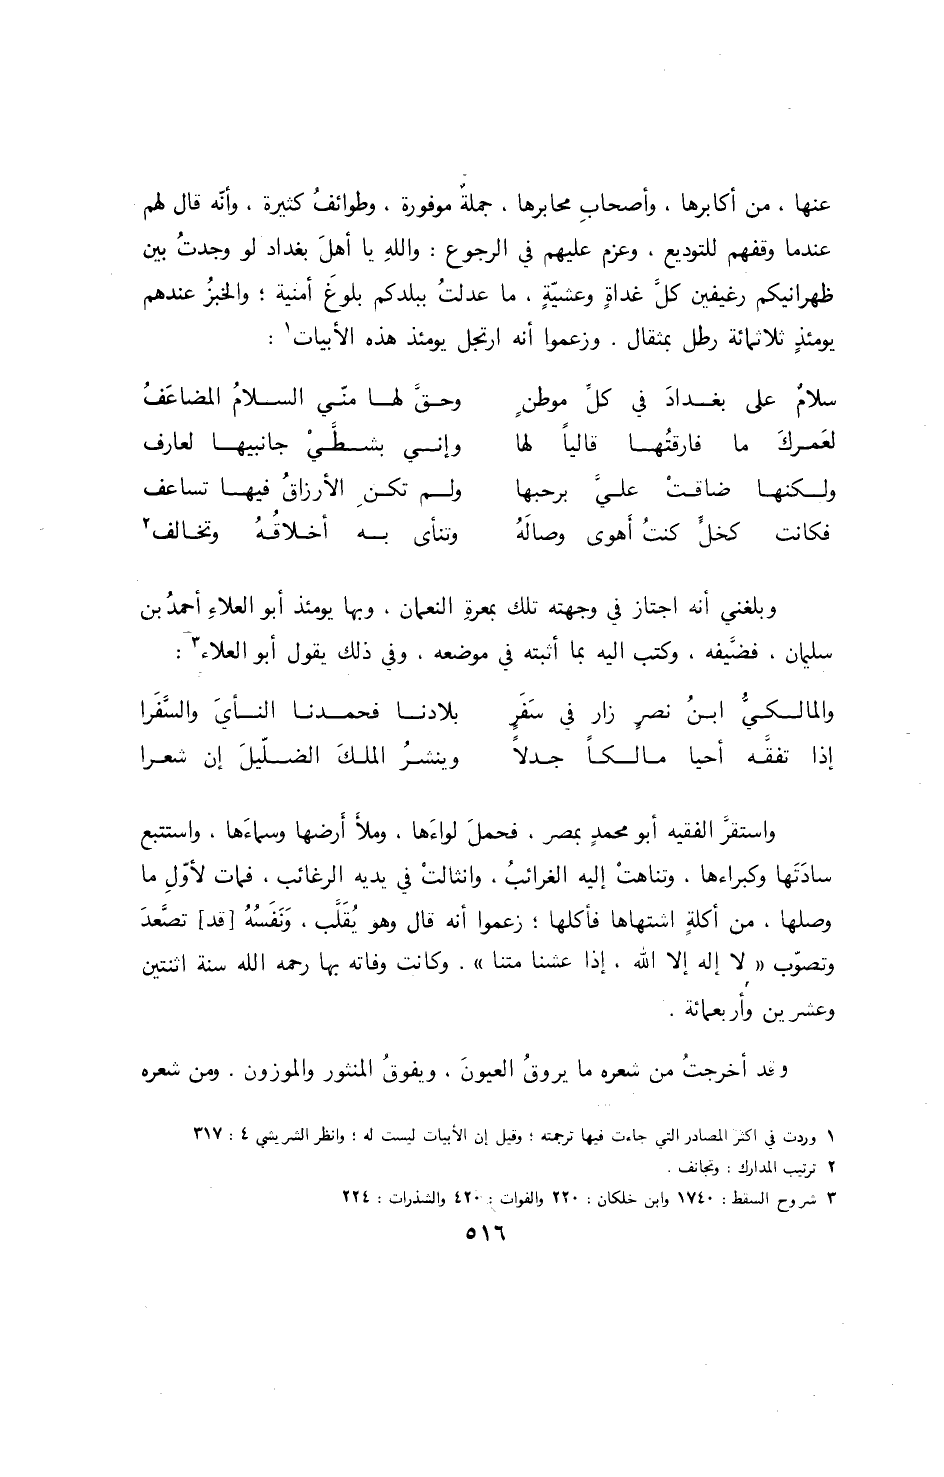 عنها ، من أكابرها ، وأصحابِ محابرها ، جملةٌ موفورة ، وطوائفُ كثيرة ، وأنّه قال لهم
عندما وقفهم للتوديع ، وعزم عليهم في الرجوع : واللهِ يا أهلَ بغداد لو وجدتُ بين
ظهرانيكم رغيفين كلَّ غداةٍ وعشيّةٍ ، ما عدلتُ ببلدكم بلوغَ أمنية ؛ والخبزُ عندهم
يومئذٍ ثلاثمائة رطل بمثقال . وزعموا أنه ارتجل يومئذ هذه الأبيات١ :
سلامٌ على بغدادَ في كلِّ موطنٍ وحقَّ لها منّي السلامُ المضاعَفُ
لعَمركَ ما فارقتُها قالياً لها وإني بشطَّيْ جانبيها لعارف
ولكنها ضاقتْ عليَّ برحبها ولم تكنِ الأرزاقُ فيها تساعف
فكانت كخلٍّ كنتُ أهوى وصالَهُ وتنأى به أخلاقُهُ وتخالف٢
وبلغني أنه اجتاز في وجهته تلك بمعرةِ النعمان ، وبها يومئذ أبو العلاءِ أحمدُ بن
سليمان ، فضيَّفه ، وكتب اليه بما أثبته في موضعه ، وفي ذلك يقول أبو العلاء٣ :
والمالكيُّ ابنُ نصرٍ زار في سَفَرٍ بلادنا فحمدنا النأيَ والسَّفَرا
إذا تفقَّه أحيا مالكاً جدلاً وينشرُ الملكَ الضلّيلَ إن شعرا
واستقرَّ الفقيه أبو محمدٍ بمصر ، فحملَ لواءَها ، وملأ أرضها وسماءَها ، واستتبع
سادَتَها وكبراءها ، وتناهتْ إليه الغرائبُ ، وانثالتْ في يديه الرغائب ، فمات لأوّلِ ما
وصلها ، من أكلةٍ اشتهاها فأكلها ؛ زعموا أنه قال وهو يُقَلَّب ، وَنَفَسُهُ [قد] تصَّعدَ
وتصوّب « لا إله إلا الله ، إذا عشنا متنا » . وكانت وفاته بها رحمه الله سنة اثنتين
وعشرين وأربعمائة .
وقد أخرجتُ من شعره ما يروقُ العيونَ ، ويفوقُ المنثور والموزون . ومن شعره
١ وردت في اكثر المصادر التي جاءت فيها ترجمته ؛ وقيل إن الأبيات ليست له ؛ وانظر الشريشي ٤ : ٣١٧
٢ ترتيب المدارك : وتجانف .
٣ شروح السقط : ١٧٤٠ وابن خلكان : ٢٢٠ والفوات : ٤٢٠ والشذرات : ٢٢٤
٥١٦